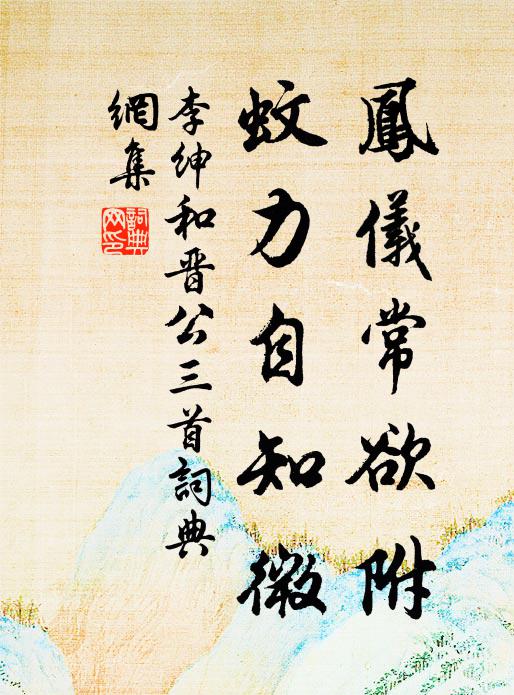 鳳儀常欲附
蚊力自知微
李紳和晋公三首詞典
網集
詞典
网印